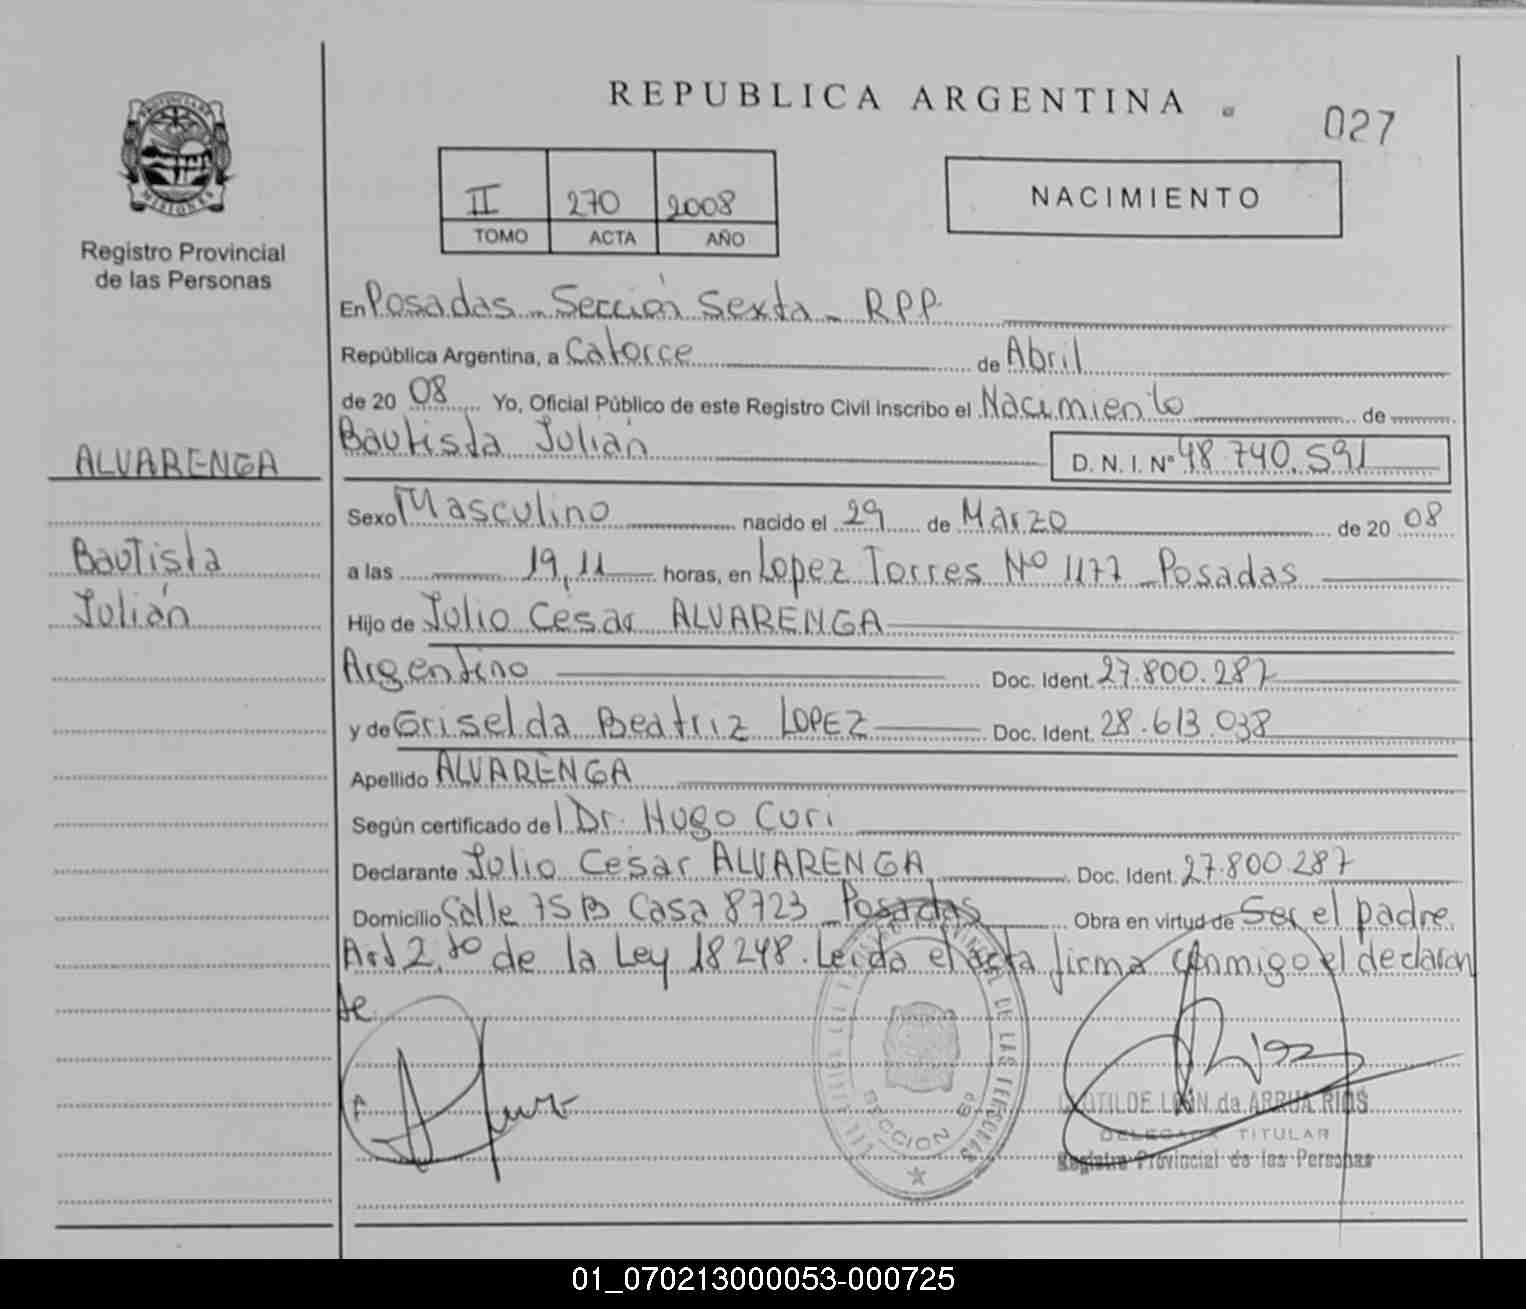 REPUBLICA ARGENTINA
027
PROVINCIA DE
MISIONES
Registro Provincial
de las Personas
II 270 2008
TOMO ACTA AÑO
NACIMIENTO
En Posadas - Sección Sexta - RPP.
República Argentina, a Catorce de Abril
de 2008 Yo, Oficial Público de este Registro Civil inscribo el Nacimiento de
Bautista Julián D. N. I. Nº 48.740.591
ALVARENGA
Bautista
Julián
Sexo Masculino nacido el 29 de Marzo de 2008
a las 19,11 horas, en Lopez Torres Nº 1177 - Posadas
Hijo de Julio César ALVARENGA
Argentino Doc. Ident. 27.800.287
y de Griselda Beatriz LOPEZ Doc. Ident. 28.613.038
Apellido ALVARENGA
Según certificado del Dr. Hugo Curi
Declarante Julio César ALVARENGA Doc. Ident. 27.800.287
Domicilio Calle 75 B Casa 8723 - Posadas Obra en virtud de Ser el padre.
Art 2.do de la Ley 18248. Leida el acta firma conmigo el declaran
te.
PROVINCIAL DE LAS PERSONAS
SECCION 6º
LEON de ARRUA RIOS
DELEGADA TITULAR
Registro Provincial de las Personas
01_070213000053-000725